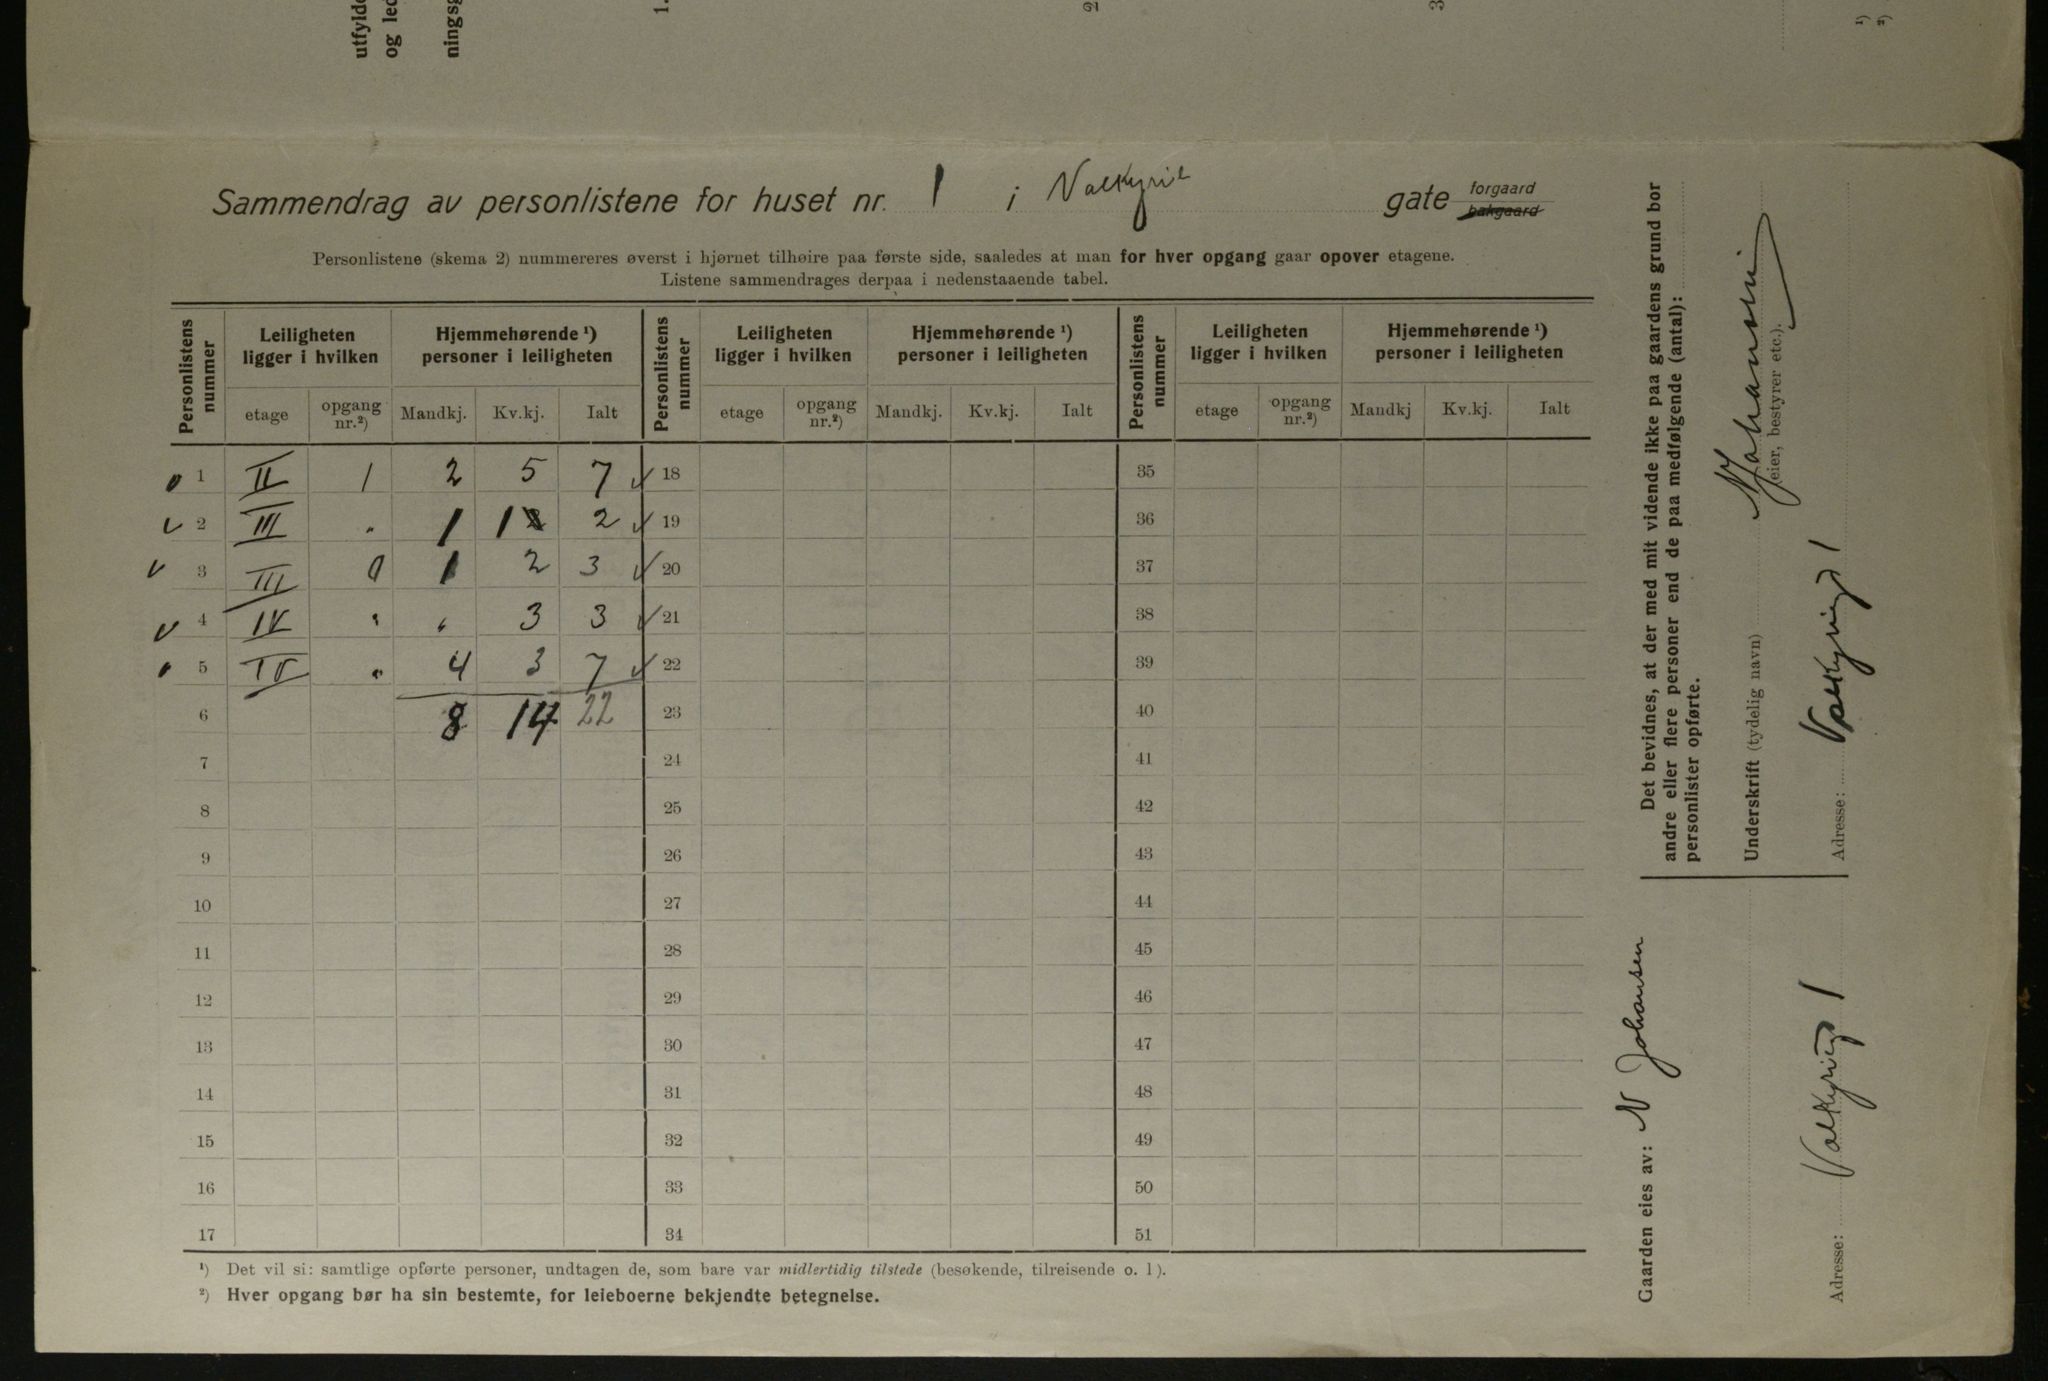 utfylde
og led
ningsg
1.
2
3
¹)
²)
Sammendrag av personlistene for huset nr. 1 i Valkyrie gate forgaard bakgaard
Personlistene (skema 2) nummereres øverst i hjørnet tilhøire paa første side, saaledes at man for hver opgang gaar opover etagene.
Listene sammendrages derpaa i nedenstaaende tabel.
Personlistens nummer | Leiligheten ligger i hvilken | Hjemmehørende ¹) personer i leiligheten | Personlistens nummer | Leiligheten ligger i hvilken | Hjemmehørende ¹) personer i leiligheten | Personlistens nummer | Leiligheten ligger i hvilken | Hjemmehørende ¹) personer i leiligheten
etage | opgang nr.²) | Mandkj. | Kv.kj. | Ialt | etage | opgang nr.²) | Mandkj. | Kv.kj. | Ialt | etage | opgang nr.²) | Mandkj | Kv.kj. | Ialt
1 II 1 2 5 7 ✓ 18 35
✓ 2 III " 1 1 2 ✓ 19 36
✓ 3 III 1 2 3 ✓ 20 37
✓ 4 IV " " 3 3 ✓ 21 38
5 IV " 4 3 7 ✓ 22 39
6 8 14 22 23 40
7 24 41
8 25 42
9 26 43
10 27 44
11 28 45
12 29 46
13 30 47
14 31 48
15 32 49
16 33 50
17 34 51
¹) Det vil si: samtlige opførte personer, undtagen de, som bare var midlertidig tilstede (besøkende, tilreisende o. l).
²) Hver opgang bør ha sin bestemte, for leieboerne bekjendte betegnelse.
Det bevidnes, at der med mit vidende ikke paa gaardens grund bor
andre eller flere personer end de paa medfølgende (antal):
personlister opførte.
Underskrift (tydelig navn) N Johansen
(eier, bestyrer etc.).
Adresse: Valkyriegt 1
Gaarden eies av: N Johansen
Adresse: Valkyriegt 1